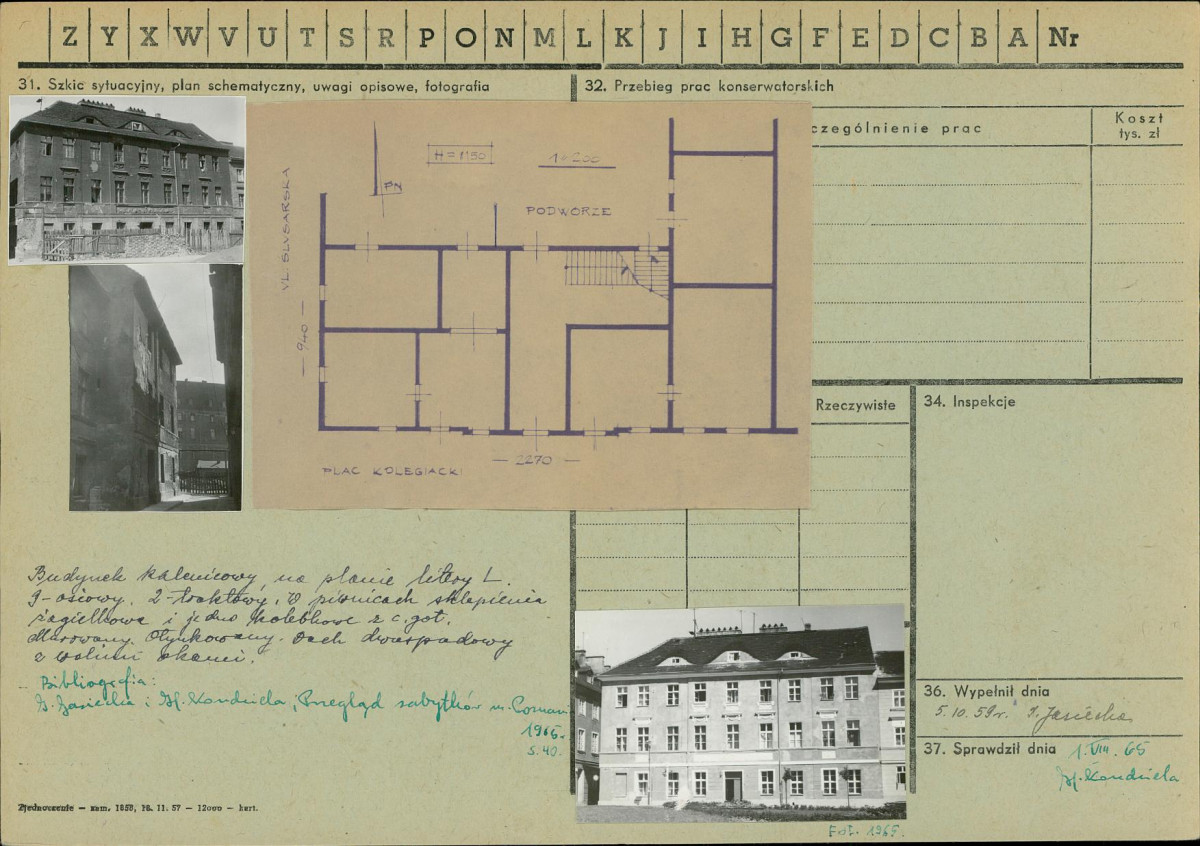 Z Y X W V U T S R P O N M L K J I H G F E D C B A Nr
31. Szkic sytuacyjny, plan schematyczny, uwagi opisowe, fotografia
32. Przebieg prac konserwatorskich
czególnienie prac
Koszt
tys. zł
H = 1150
1 : 200
PN
PODWÓRZE
UL. SLUSARSKA
— 940 —
— 2270 —
PLAC KOLEGIACKI
Rzeczywiste
34. Inspekcje
Budynek kalenicowy, na planie litery L.
9-osiowy. 2-traktowy, W piwnicach sklepienia
żagielkowe i jedno kolebkowe z c. got.
Murowany. Otynkowany. Dach dwuspadowy
z wolimi okami.
Bibliografia:
I. Jasiecka i H. Kondziela, Przegląd zabytków m. Poznan
1965.
s. 40.
36. Wypełnił dnia
5.10.59 r. I. Jasiecka
37. Sprawdził dnia 1.VIII.65
H. Kondziela
Zjednoczenie — zam. 1858, 18. 11. 57 — 12000 — kart.
Fot. 1965.